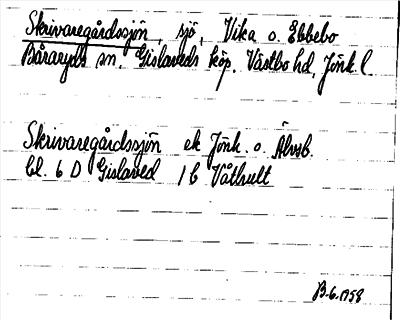 Skrivaregårdssjön, sjö, Vika o. Ebbebo
Båraryds sn. Gislaveds köp. Västbo hd, Jönk l.
Skrivaregårdssjön ek Jönk. o. Älvsb.
bl. 6 D Gislaved 1 b Våthult
B.6.1958